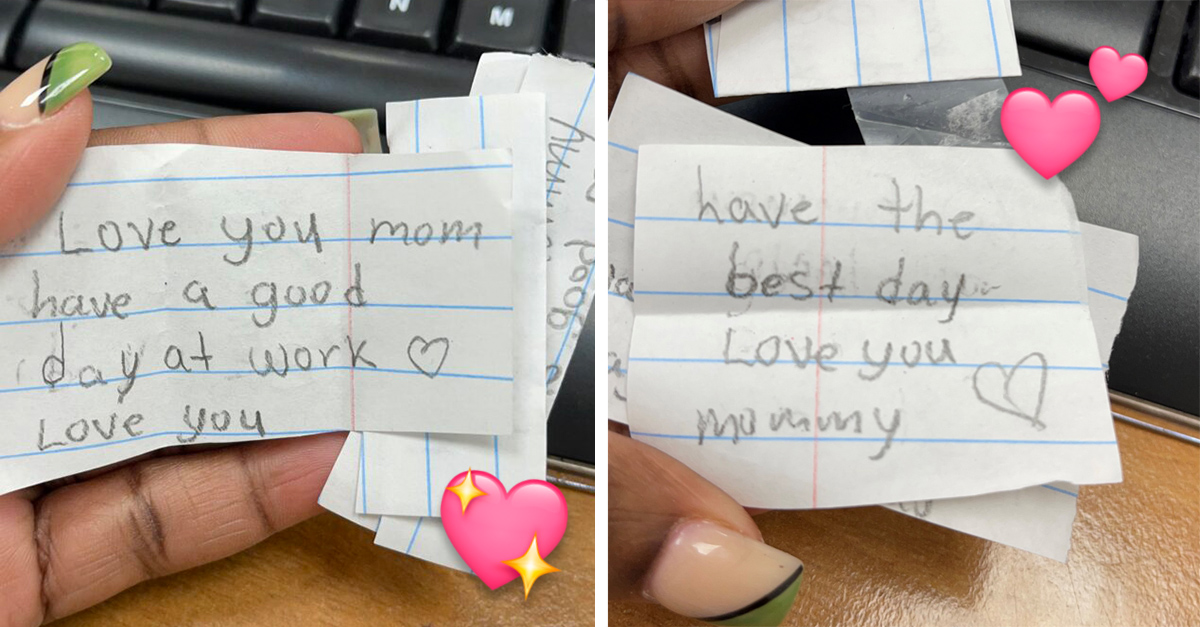 N
M
Love you mom
have a good
day at work ♡
Love you
have the
best day
Love you
mommy ♡